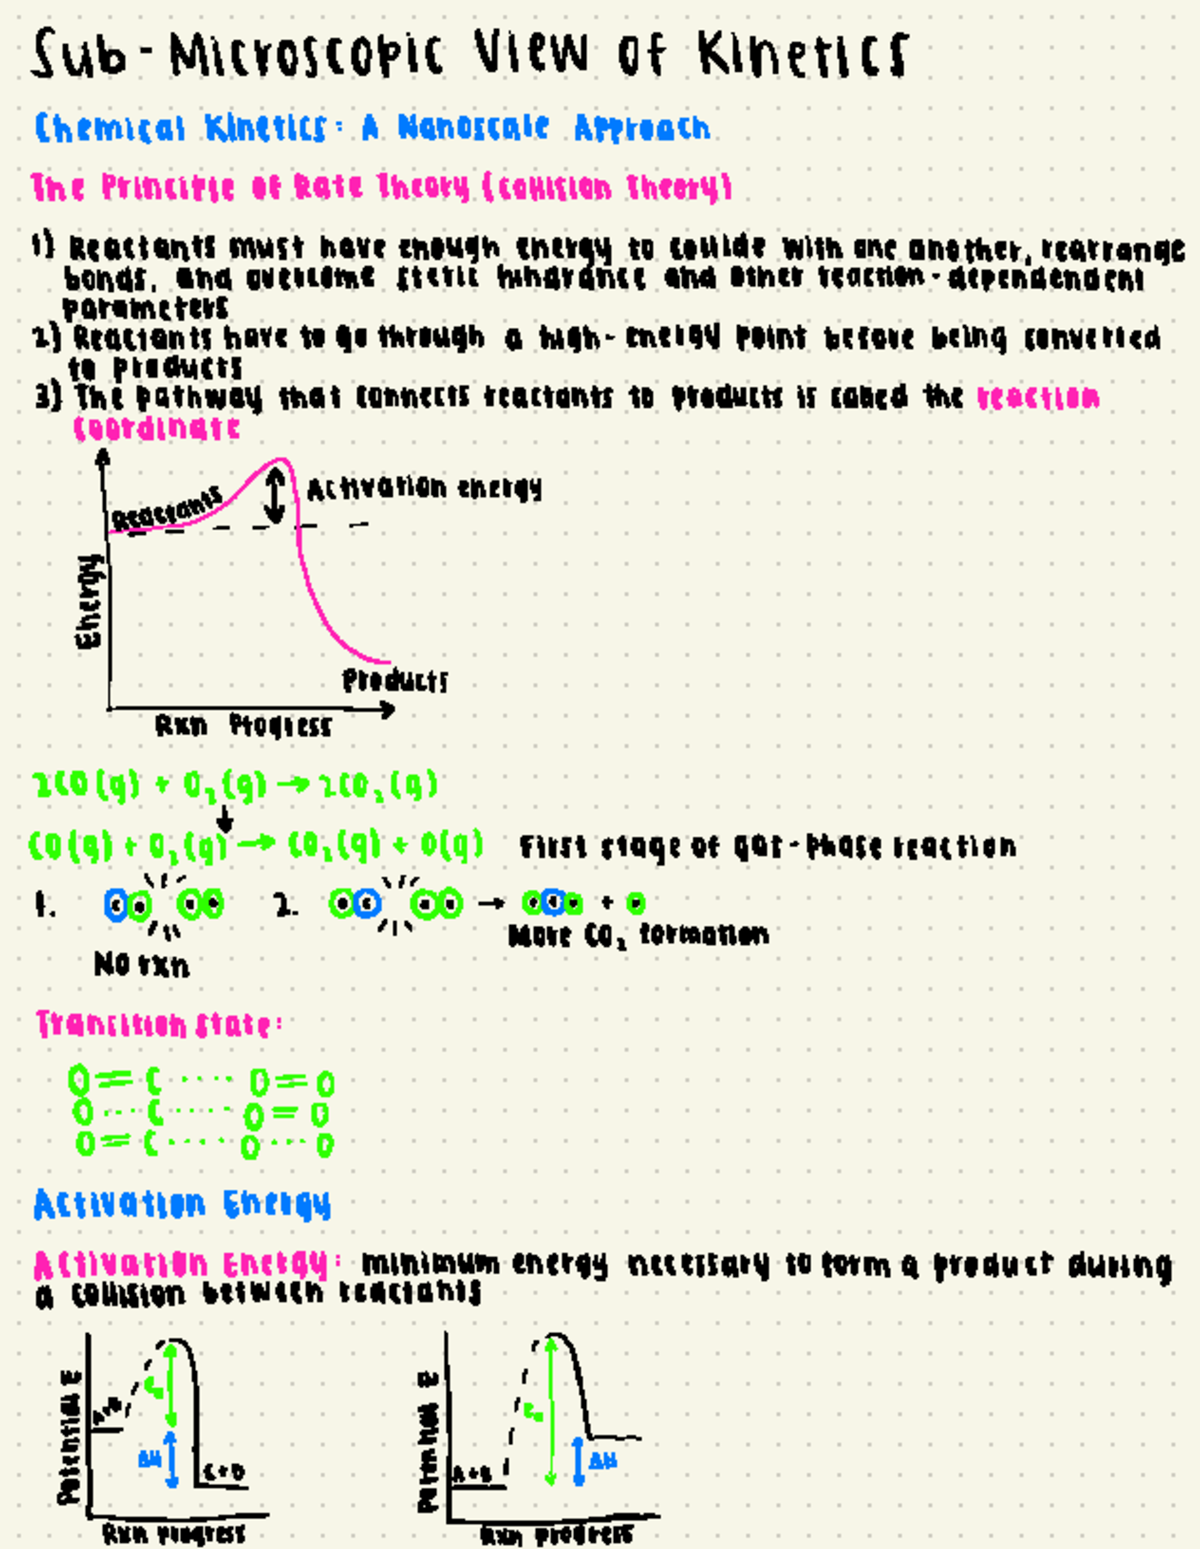 Sub-Microscopic View of Kinetics
Chemical Kinetics: A Nanoscale Approach
The Principle of Rate Theory (Collision Theory)
1) Reactants must have enough energy to collide with one another, rearrange
bonds, and overcome steric hindrance and other reaction-dependendent
parameters
2) Reactants have to go through a high-energy point before being converted
to products
3) The pathway that connects reactants to products is called the reaction
coordinate
Reactants
Activation energy
Energy
Products
Rxn Progress
2CO(g) + O₂(g) → 2CO₂(g)
↓
CO(g) + O₂(g) → CO₂(g) + O(g) First stage of gas-phase reaction
1. 2. → +
More CO₂ formation
No rxn
Transition State:
O=C ····· O=O
O···C ····· O=O
O=C ····· O···O
Activation Energy
Activation Energy: minimum energy necessary to form a product during
a collision between reactants
Potential E
Ea
ΔH
C+D
Rxn progress
Potential E
Ea
A+B
ΔH
Rxn progress